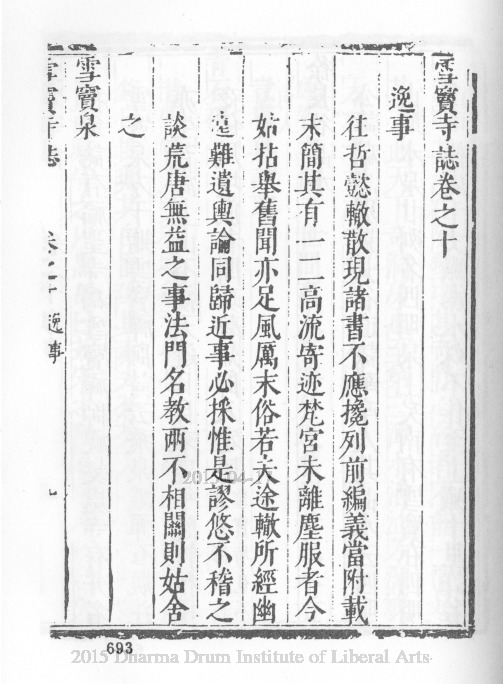 雪竇寺誌卷之十
逸事
往哲懿轍散現諸書不應攙列前編義當附載
末簡其有一二高流寄迹梵宮未離塵服者今
姑拈舉舊聞亦足風厲末俗若夫途轍所經幽
遠難遺輿論同歸近事必採惟是謬悠不稽之
談荒唐無益之事法門名教兩不相關則姑舍
之
雪竇泉
雪竇寺誌 卷之十 逸事
693
2015 Dharma Drum Institute of Liberal Arts